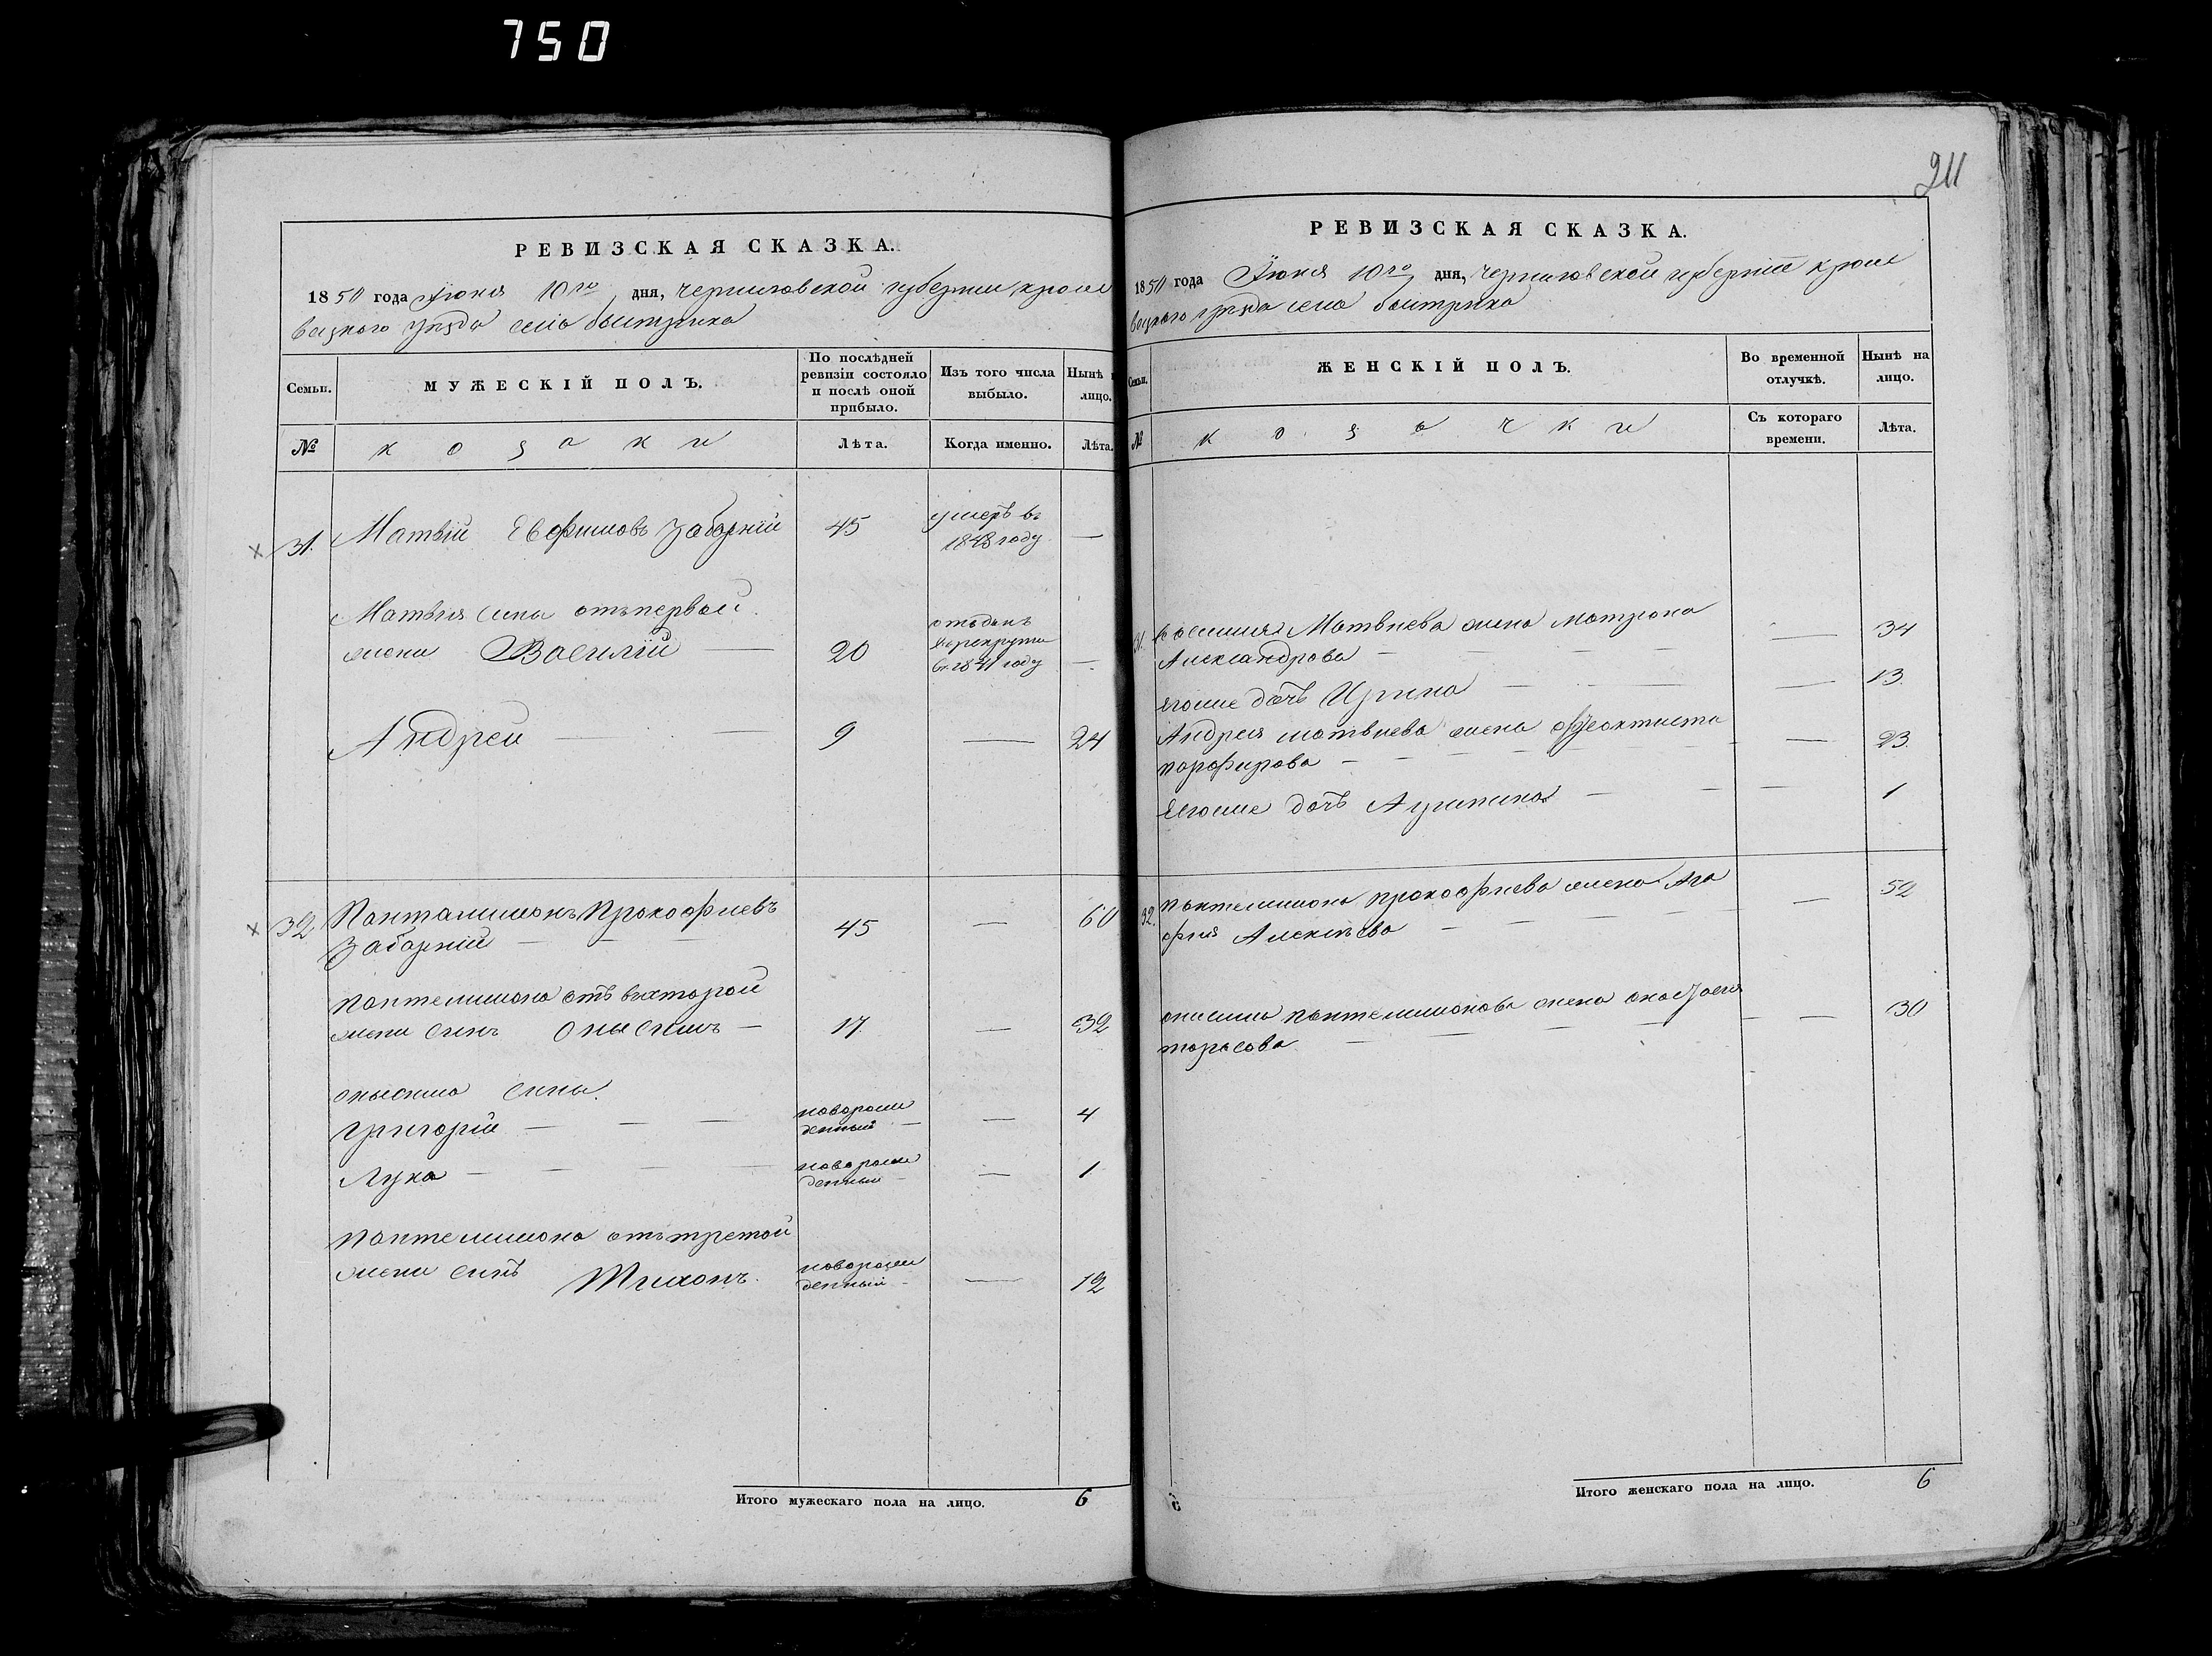 750
РЕВИЗСКАЯ СКАЗКА.
1850 года Іюня 10го дня, черниговской губернии кроле
вецкого уезда села быстрика
Семьи.
МУЖЕСКІЙ ПОЛЪ.
По послѣдней ревизіи состояло и послѣ оной прибыло.
Изъ того числа выбыло.
Нынѣ
лицо.
№
козаки
Лѣта.
Когда именно.
Лѣта.
31. Матвій Евфимовъ Заборній 45 умеръ въ 1843 году —
Матвія сини отъ первой
жени Василій — 20 отъданъ в рекрути въ 1841 году —
Андрей — 9 — 24
32 Панталимонъ Прокофиевъ
Заборній — 45 — 60
Пантелимона отъ втортой
жени синъ Онысимъ — 17 — 32
онысима сины
Григорій — новорожденный — 4
Лука — новорожденный — 1
Пантелимона отъ третой
жени синъ Тихонъ. новорожденный — 12
Итого мужескаго пола на лицо. 6
211
РЕВИЗСКАЯ СКАЗКА.
1850 года Іюня 10го дня, черниговской губерніи кроле
вецкого уезда села быстрика
Семьи.
ЖЕНСКІЙ ПОЛЪ.
Во временной отлучкѣ.
Нынѣ на лицо.
№
козачки
Съ котораго времени.
Лѣта.
31. Василия Матвиева жена Матрона — 34
Александрова
егоже дочь Ирина — 13.
Андрея матвиева жена Феоктиста — 23.
парфирова
Егоже дочь Агрипина — 1
32. Пантелимона прокофиева жена Ага — 52
фия Алексѣева
онисима пантелимонова жена анастасия — 30
тарасова
Итого женскаго пола на лицо. 6